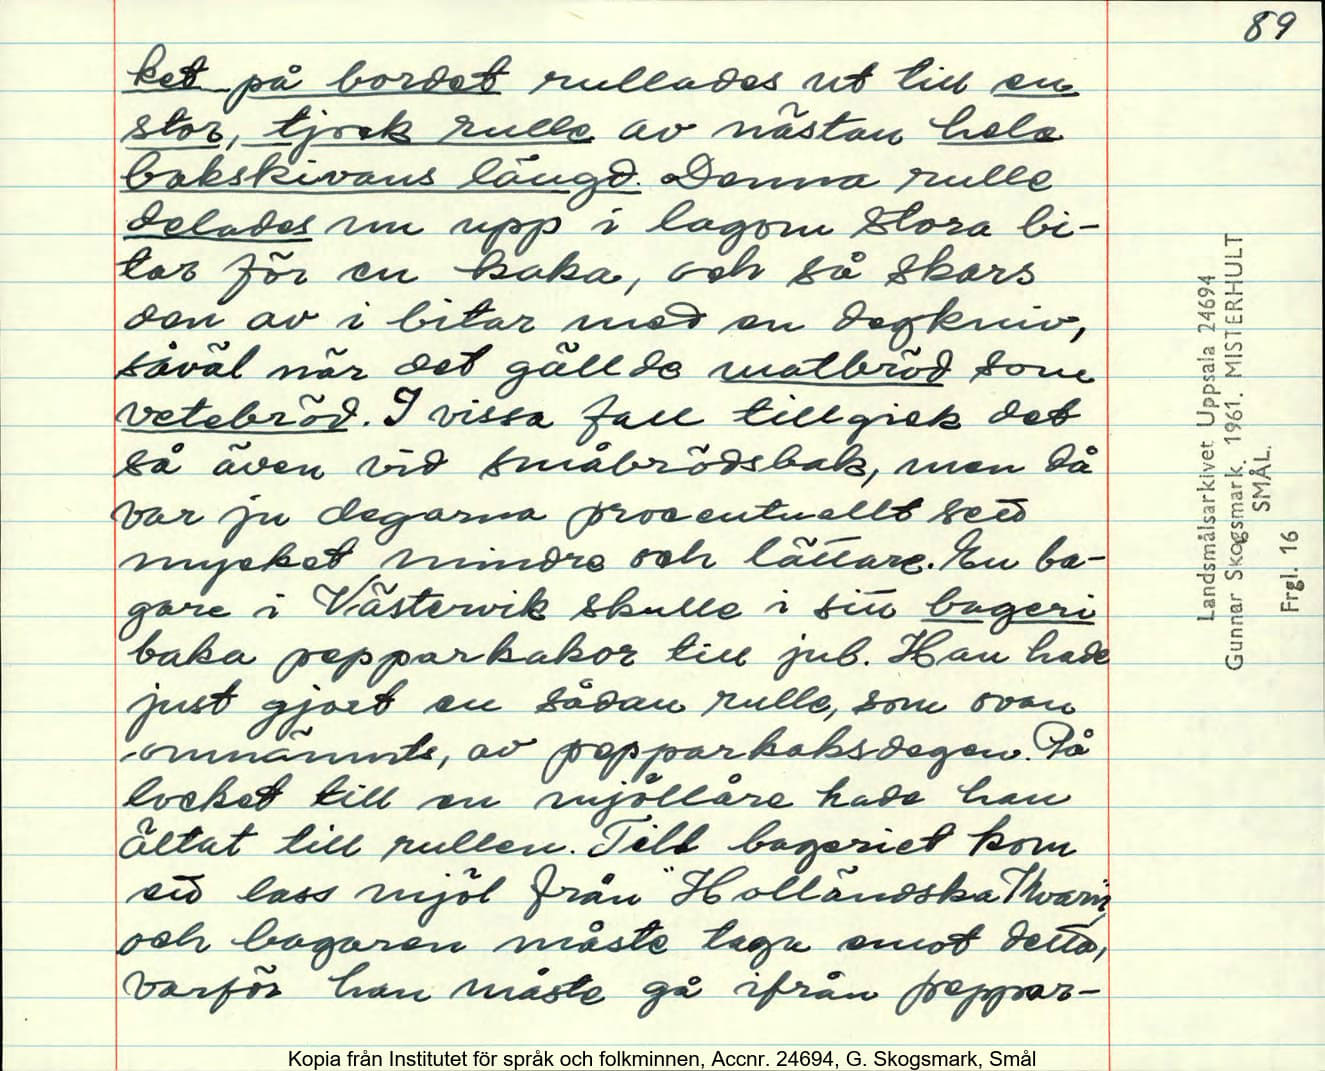 89
ket på bordet rullades ut till en
stor, tjock rulle av nästan hela
bakskivans längd. Denna rulle
delades nu upp i lagom stora bi-
tar för en kaka, och så skars
den av i bitar med en degkniv,
såväl när det gällde matbröd som
vetebröd. I vissa fall tillgick det
så även vid småbrödsbak, men då
var ju degarna procentuellt sett
mycket mindre och lättare. En ba-
gare i Västervik skulle i sitt bageri
baka pepparkakor till jul. Han hade
just gjort en sådan rulle, som ovan
omnämnts, av pepparkaksdegen. På
locket till en mjöllåre hade han
ältat till rullen. Till bageriet kom
ett lass mjöl från "Holländska Kvarn",
och bagaren måste taga emot detta,
varför han måste gå ifrån peppar-
Landsmålsarkivet Uppsala 24694
Gunnar Skogsmark. 1961. MISTERHULT
SMÅL.
Frgl. 16
Kopia från Institutet för språk och folkminnen, Accnr. 24694, G. Skogsmark, Smål